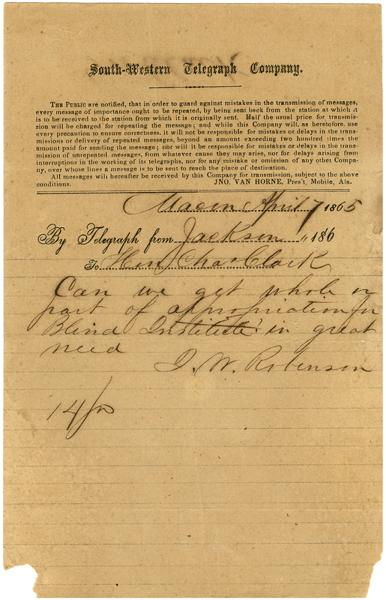 South-Western Telegraph Company.
THE PUBLIC are notified, that in order to guard against mistakes in the transmission of messages,
every message of importance ought to be repeated, by being sent back from the station at which it
is to be received to the station from which it is originally sent. Half the usual price for transmis-
sion will be charged for repeating the message; and while this Company will, as heretofore, use
every precaution to ensure correctness, it will not be responsible for mistakes or delays in the trans-
missions or delivery of repeated messages, beyond an amount exceeding two hundred times the
amount paid for sending the message; nor will it be responsible for mistakes or delays in the trans-
mission of unrepeated messages, from whatever cause they may arise, nor for delays arising from
interruptions in the working of its telegraphs, nor for any mistake or omission of any other Company,
over whose lines a message is to be sent to reach the place of destination.
All messages will hereafter be received by this Company for transmission, subject to the above
conditions. JNO. VAN HORNE, Pres't, Mobile, Ala.
Macon April 7 1865
By Telegraph from Jackson 186
To Hon Chas Clark
Can we get whole or
part of appropriation for
Blind Institute in great
need
J. W. Robinson
14/